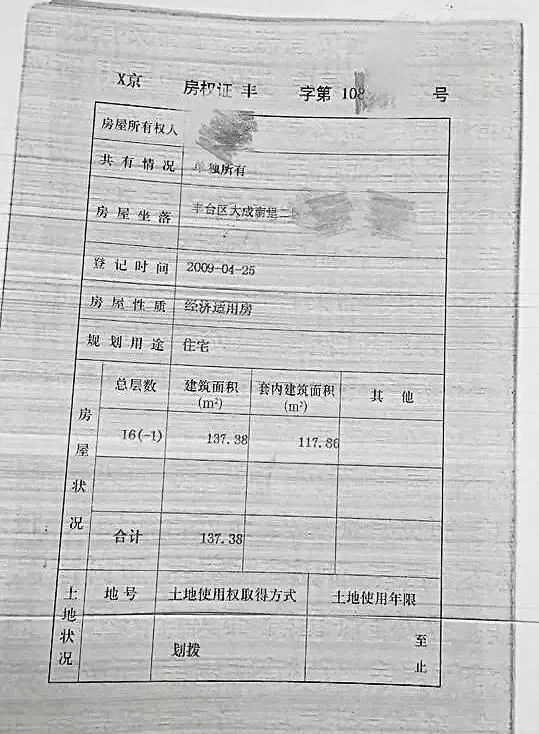 X京 房权证 丰 字第 108 号
房屋所有权人
共有情况 单独所有
房屋坐落 丰台区大成南里二
登记时间 2009-04-25
房屋性质 经济适用房
规划用途 住宅
房屋状况
总层数 建筑面积 套内建筑面积 其他
(m²) (m²)
16(-1) 137.38 117.86
合计 137.38
土地状况
地号 土地使用权取得方式 土地使用年限
划拨 至
止